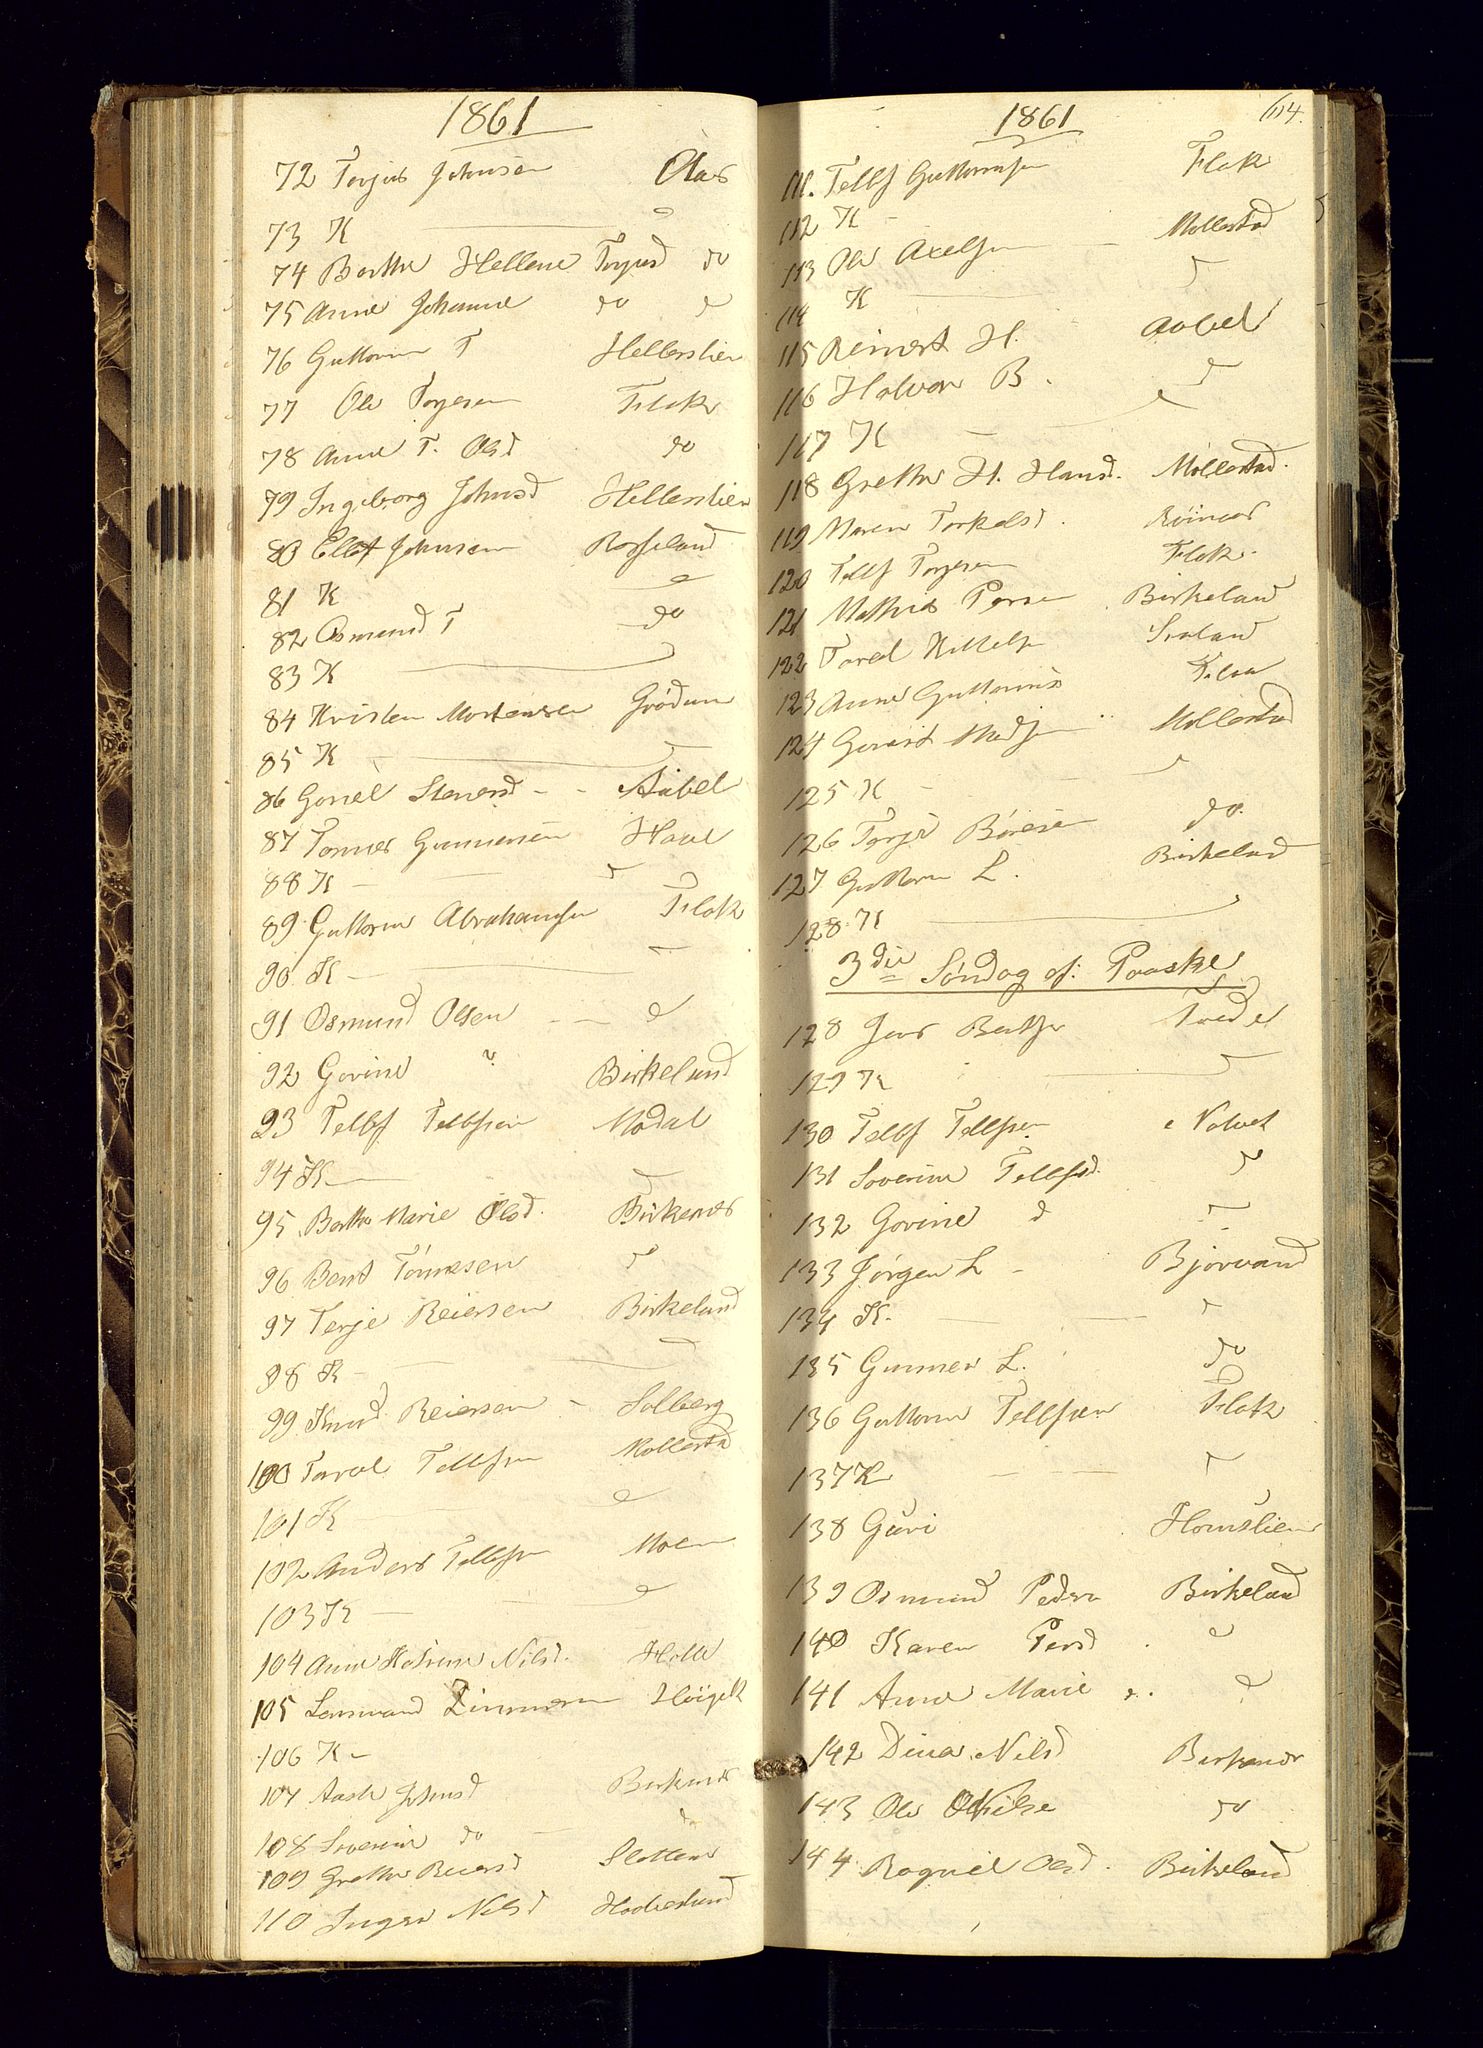 1861
72 Torjus Johnsen Oläs
73 K
74 Berthe Hellene Torjusd do
75 Anne Johanne do d
76 Guttorm T Hellerslien
77 Ole Torjesen Flak
78 Anne T. Olsd do
79 Ingeborg Johnsd Hellerslien
80 Ellef Johnsen Rosseland
81 K
82 Osmund T do
83 K
84 Kristen Mortensen Grödum
85 K
86 Goriel Stenersd - - Aabel
87 Tomes Gunnersen Haae
88 K
89 Guttorm Abrahamsen Flak
90 K
91 Osmund Olsen d
92 Govine Birkeland
93 Tellef Tellefsen Modal
94 K
95 Berthe Marie Olsd. Birkenes
96 Bent Tönnesen
97 Terje Reiersen Birkeland
98 K
99 Knud Reiersen - Solberg
100 Tarral Tellefsen Mollestad
101 K
102 Anders Tellefsen Moen
103 K
104 Anne Katrine Nilsd. Holle
105 Lensmand Zimmerm
106 K
107 Aaste Johnsd Birkenes
108 Severine do
109 Grethe Reiersd Slotten
110 Inger Nilsd
1861 114.
111. Tellef Guttormsen Flak
112 K
113 Ole Axelsen Mollestad
114 K
115 Reinert H. Aabel
116 Halvor B.
117 K
118 Grethe H. Hansd. Mollestad.
119 Maren Torkelsd. Röinaas
120 Tellef Torjesen Flak.
121 Mathias Persen Birkeland
122 Tarral Kittelsen
123 Anne Guttormsd
124 Gunist Madsen Mollestad
125 K
126 Torje Börresen do.
127 Guttorm L. Birkeland
128 K
3die Söndag ef: Paaske
128 Jens Berthsen Tvede
129 K
130 Tellef Tellefsen Natvet
131 Severine Tellefsd.
132 Govine d
133 Jörgen L - Bjorvand
134 K.
135 Gunner L. do
136 Guttorm Tellefsen Flak
137 K
138 Guri Homslien
139 Osmund Peders Birkeland
140 Karen Persd d
141 Anne Marie d
142 Dina Nilsd Birkenes
143 Ole do
144 Ragnil Olsd. Birkeland